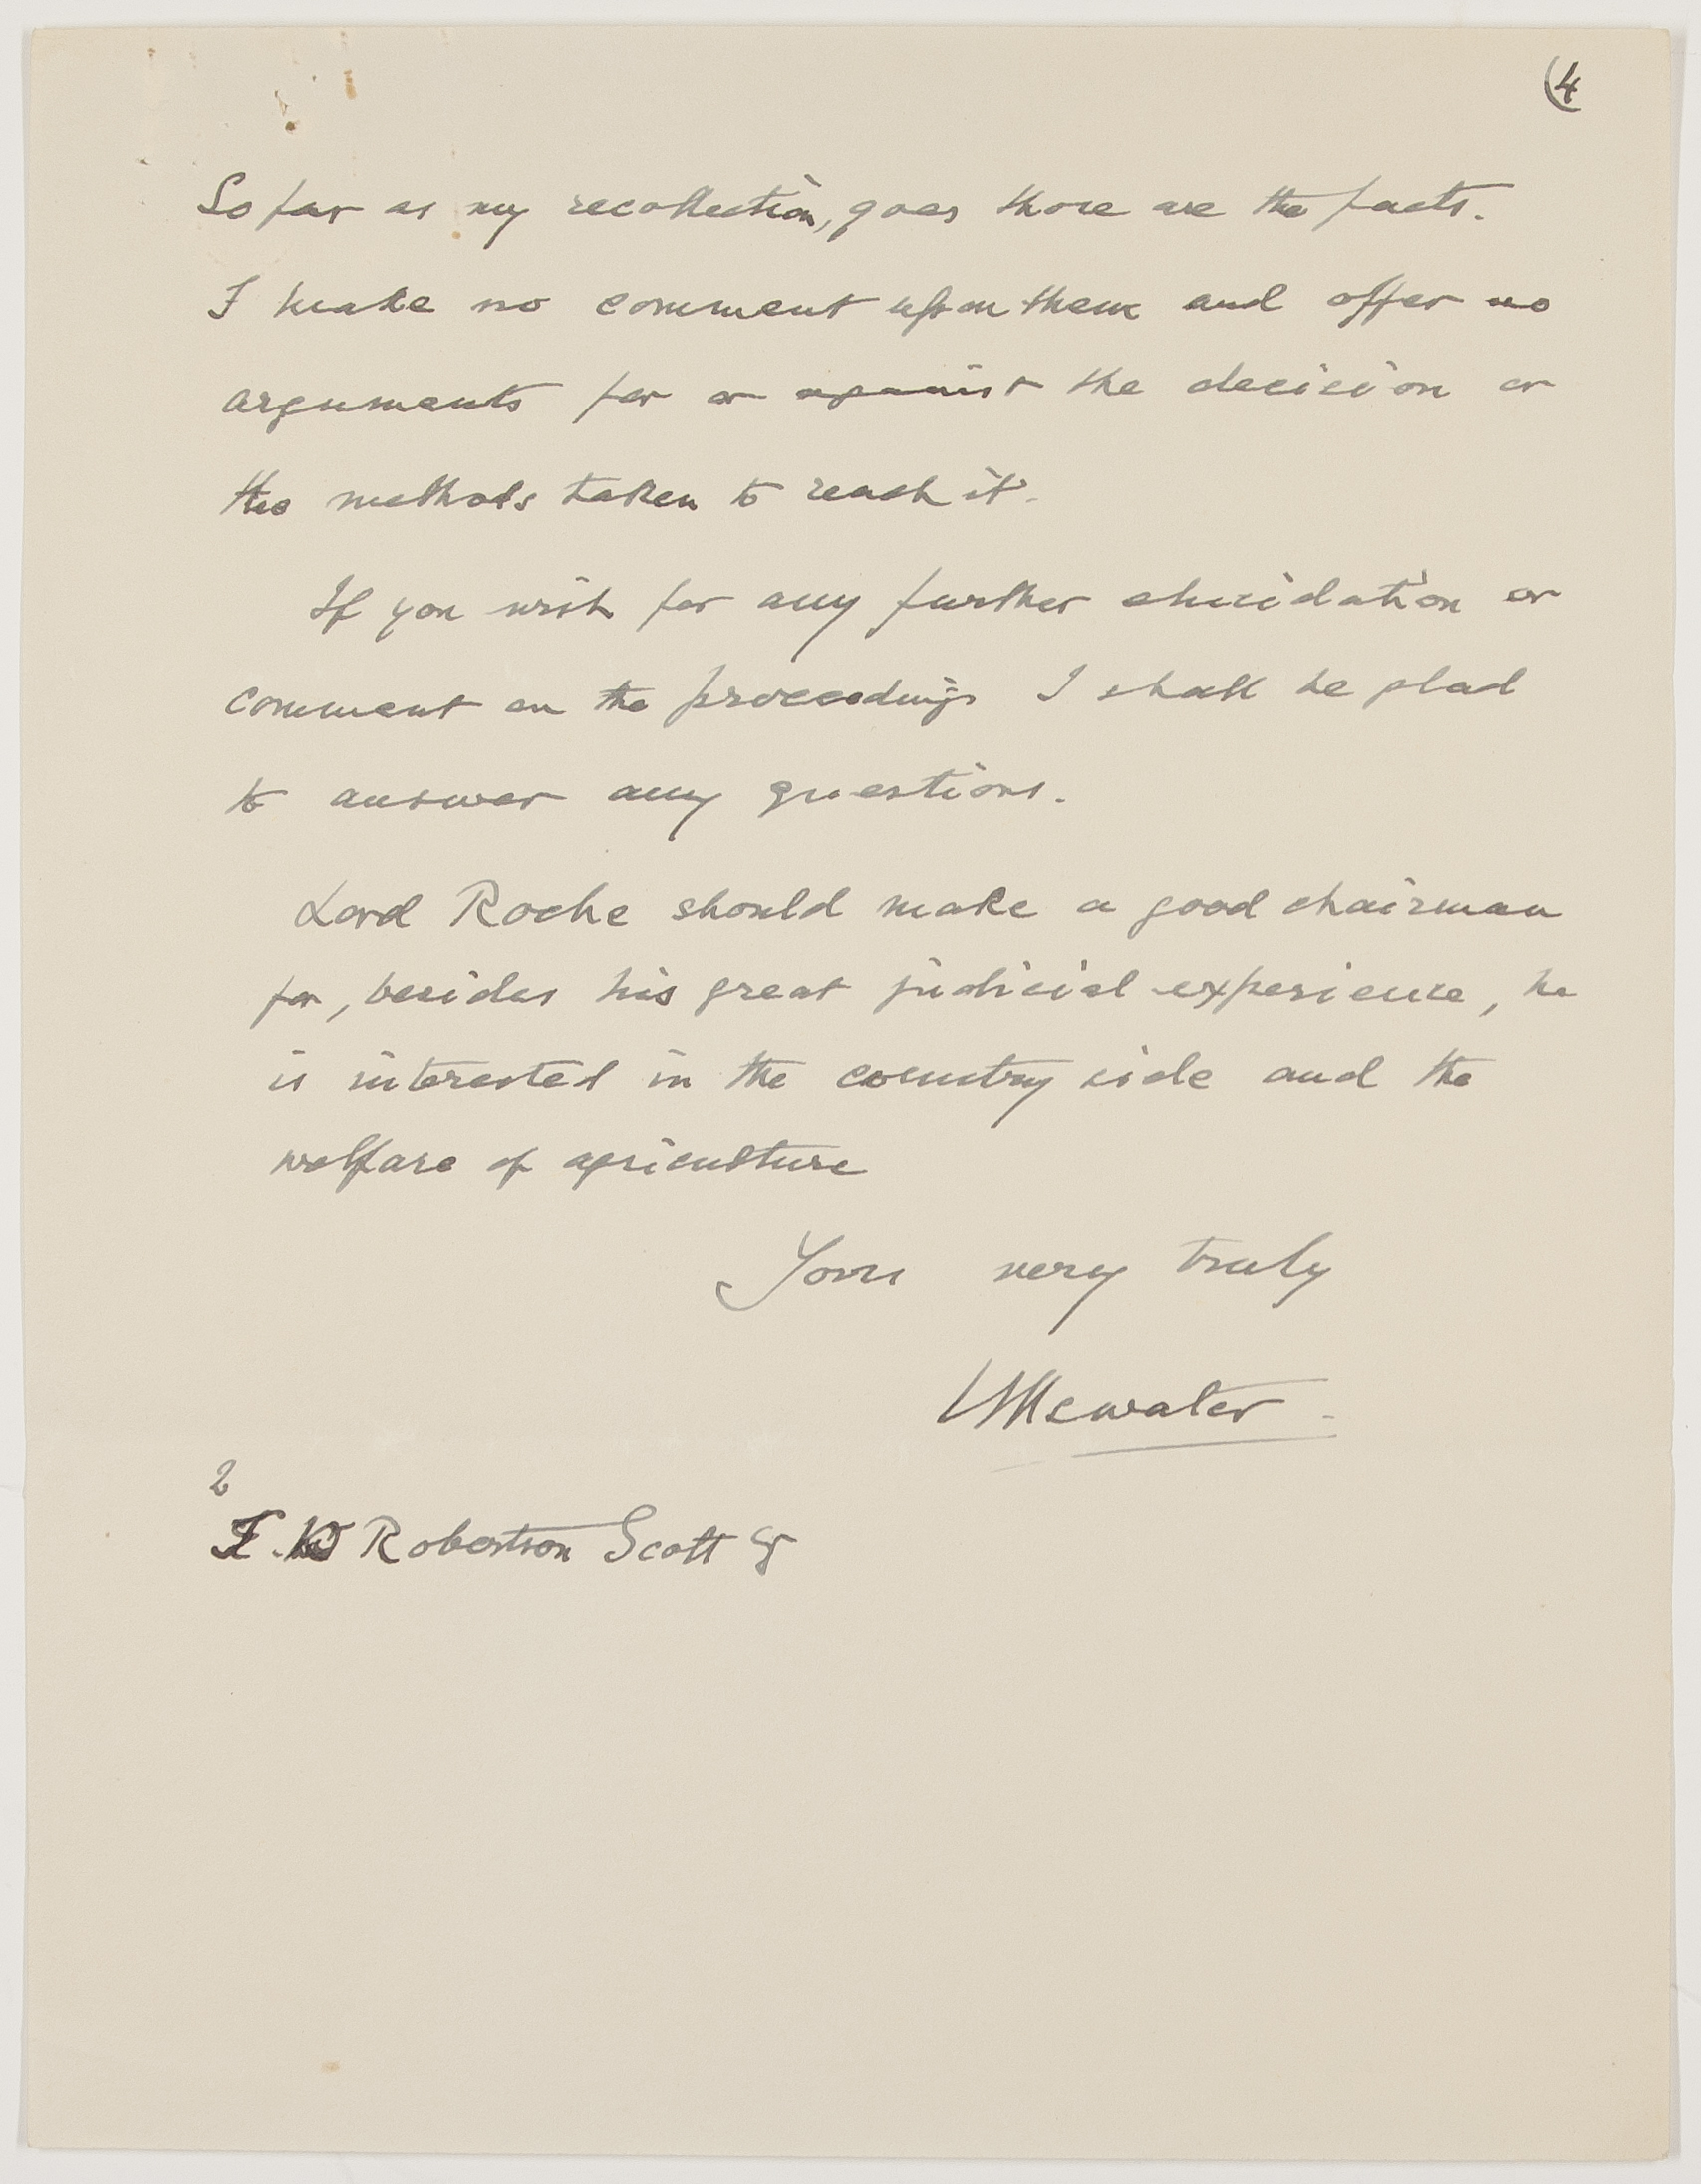 (4
So far as my recollection, goes those are the facts.
I make no comment upon them and offer no
arguments for or against the decision or
the methods taken to reach it.
If you wish for any further elucidation or
comment on the proceedings I shall be glad
to answer any questions.
Lord Roche should make a good chairman
for, besides his great judicial experience, he
is interested in the country side and the
welfare of agriculture
Yours very truly
Ullswater.
2
Robertson Scott